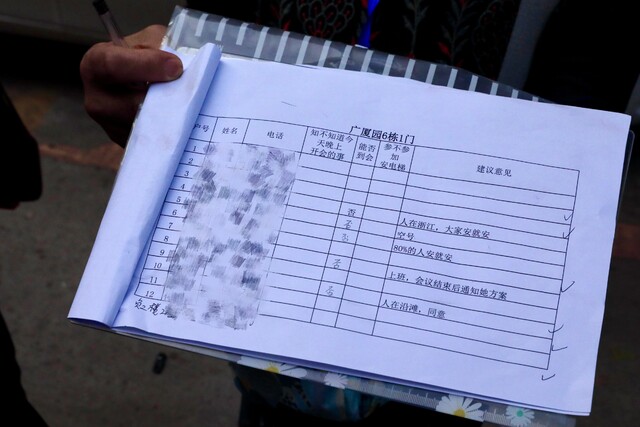 广厦园6栋1门
户号 姓名 电话 知不知道今天晚上开会的事 能否到会 参不参加安电梯 建议意见
1
2
3
4
5 否 人在浙江，大家安就安
6 否 空号
7 否 80%的人安就安
8
9 否 上班，会议结束后通知她方案
10
11 否 人在沿滩，同意
12